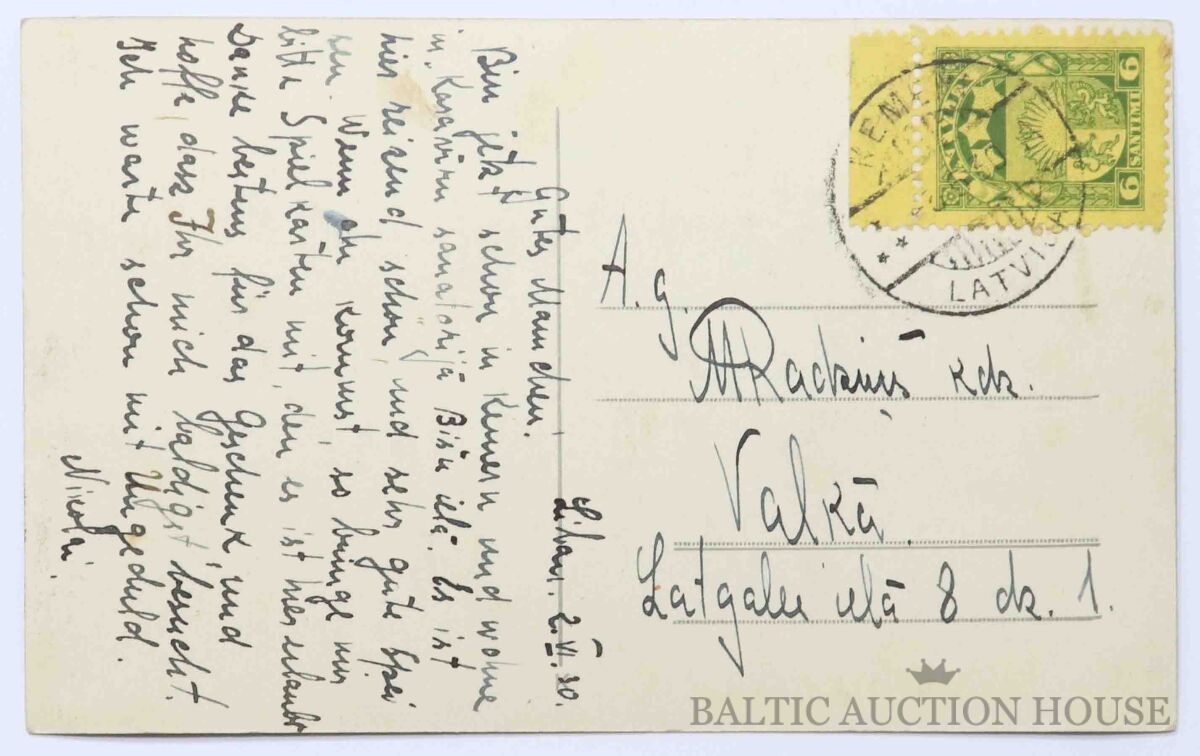 Gutes Mamchen.
Bin jetzt schon in Kemern und wohne
in "Karavīru sanatorijā Bišu ielā. Es ist
hier reizend schön und sehr gute Spei
sen. Wenn du kommst, so bringe mir
bitte Spielkarten mit, den es ist hier erlaubt
Danke bestens für das Geschenk, und
hoffe, dass Ihr mich baldigst besucht.
Ich warte schon mit Ungeduld.
Nikolai.
2. VI. 30.
KEMERI
LATVIJA
LATVIJA
6 SANTIMI 6
A. g.
M Radziņš kdz.
Valkā.
Latgales ielā 8 dz. 1.
BALTIC AUCTION HOUSE